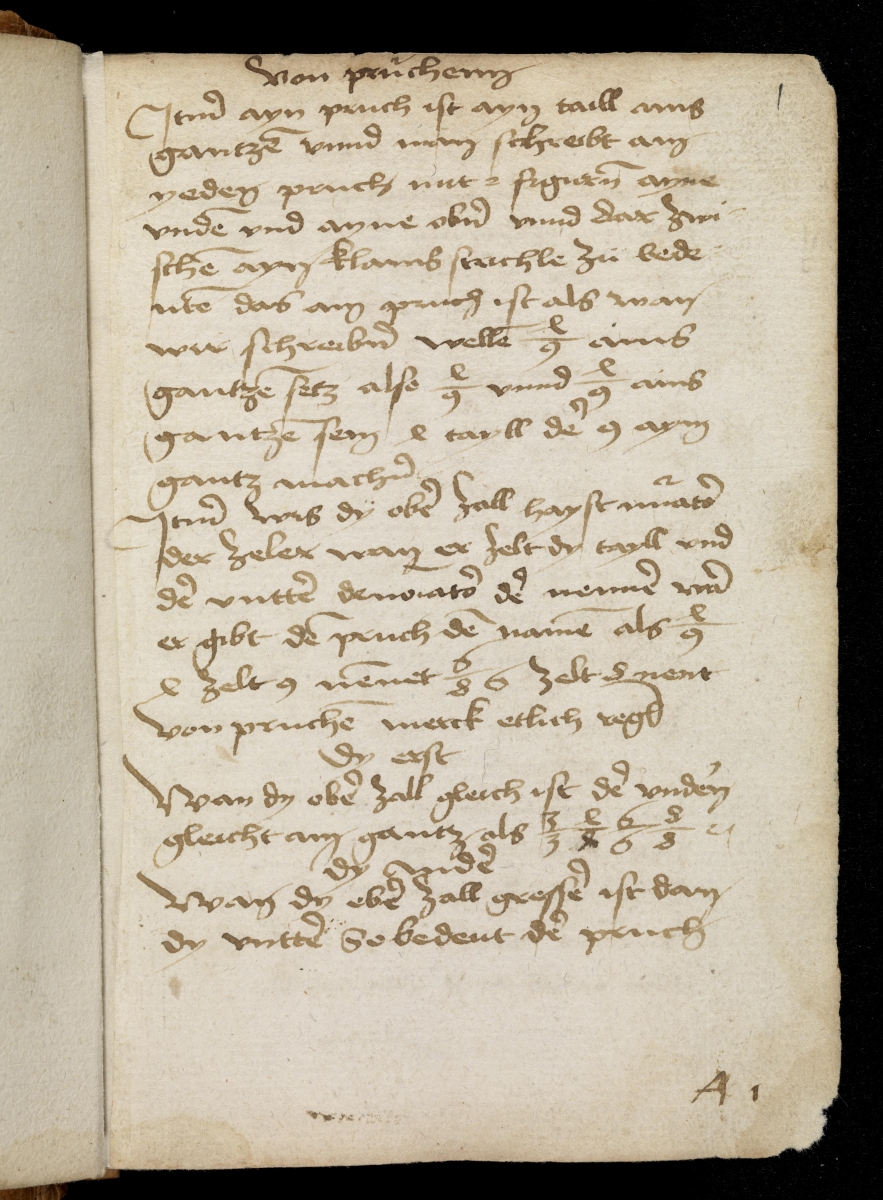 von pruchenn
Itm̄ ayn pruch ist ayn taill ains
gantzē vnnd man schreibt ain
yeden pruch mit 2 figurn̄ ayne
vndē vnd ayne obn̄ vnnd dar zwi
schē ayn klains strichle zu bede
utē das ain pruch ist als wan
wir schreibn̄ wellē 4/9 ains
gantzē setz also 4/9 vnnd 4/9 ains
gantzē sein 4 tayll de͛ 9 ayn
gantz machn̄
Itm̄ wis dy obe͛ zall hayst nūato͛
der zeler wan er zelt dy tayll vnd
de͛ vntte͛ denoīato͛ de͛ nenne͛ wān
er gibt dē pruch dē namē als 4/9
4 zelt 9 nēnet 6/8 6 zelt 8 nent
von pruchē merck etlich regl̄
dy erst
Wan dy obe͛ zall gleich ist de͛ vnde͛n
gleicht ain gantz als 3/3 4/4 6/6 8/8 ec
dy ande͛
Wan dy obe͛ zall gresse͛ ist dan
dy vntte͛ So bedeut de͛ pruch
A 1
1